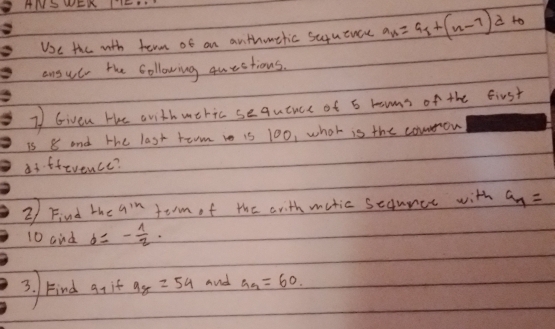 ANSWER ME...
Use the nth term of an arithmetic sequence aₙ = a₁ + (n-1) d to
answer the following questions.
1) Given the arithmetic sequence of 5 terms of the first
is 8 and the last term is 100, what is the common
difference?
2) Find the 9th term of the arithmetic sequence with a₁ =
10 and d = -1/2.
3.) Find a₁ if a₈ = 54 and a₉ = 60.